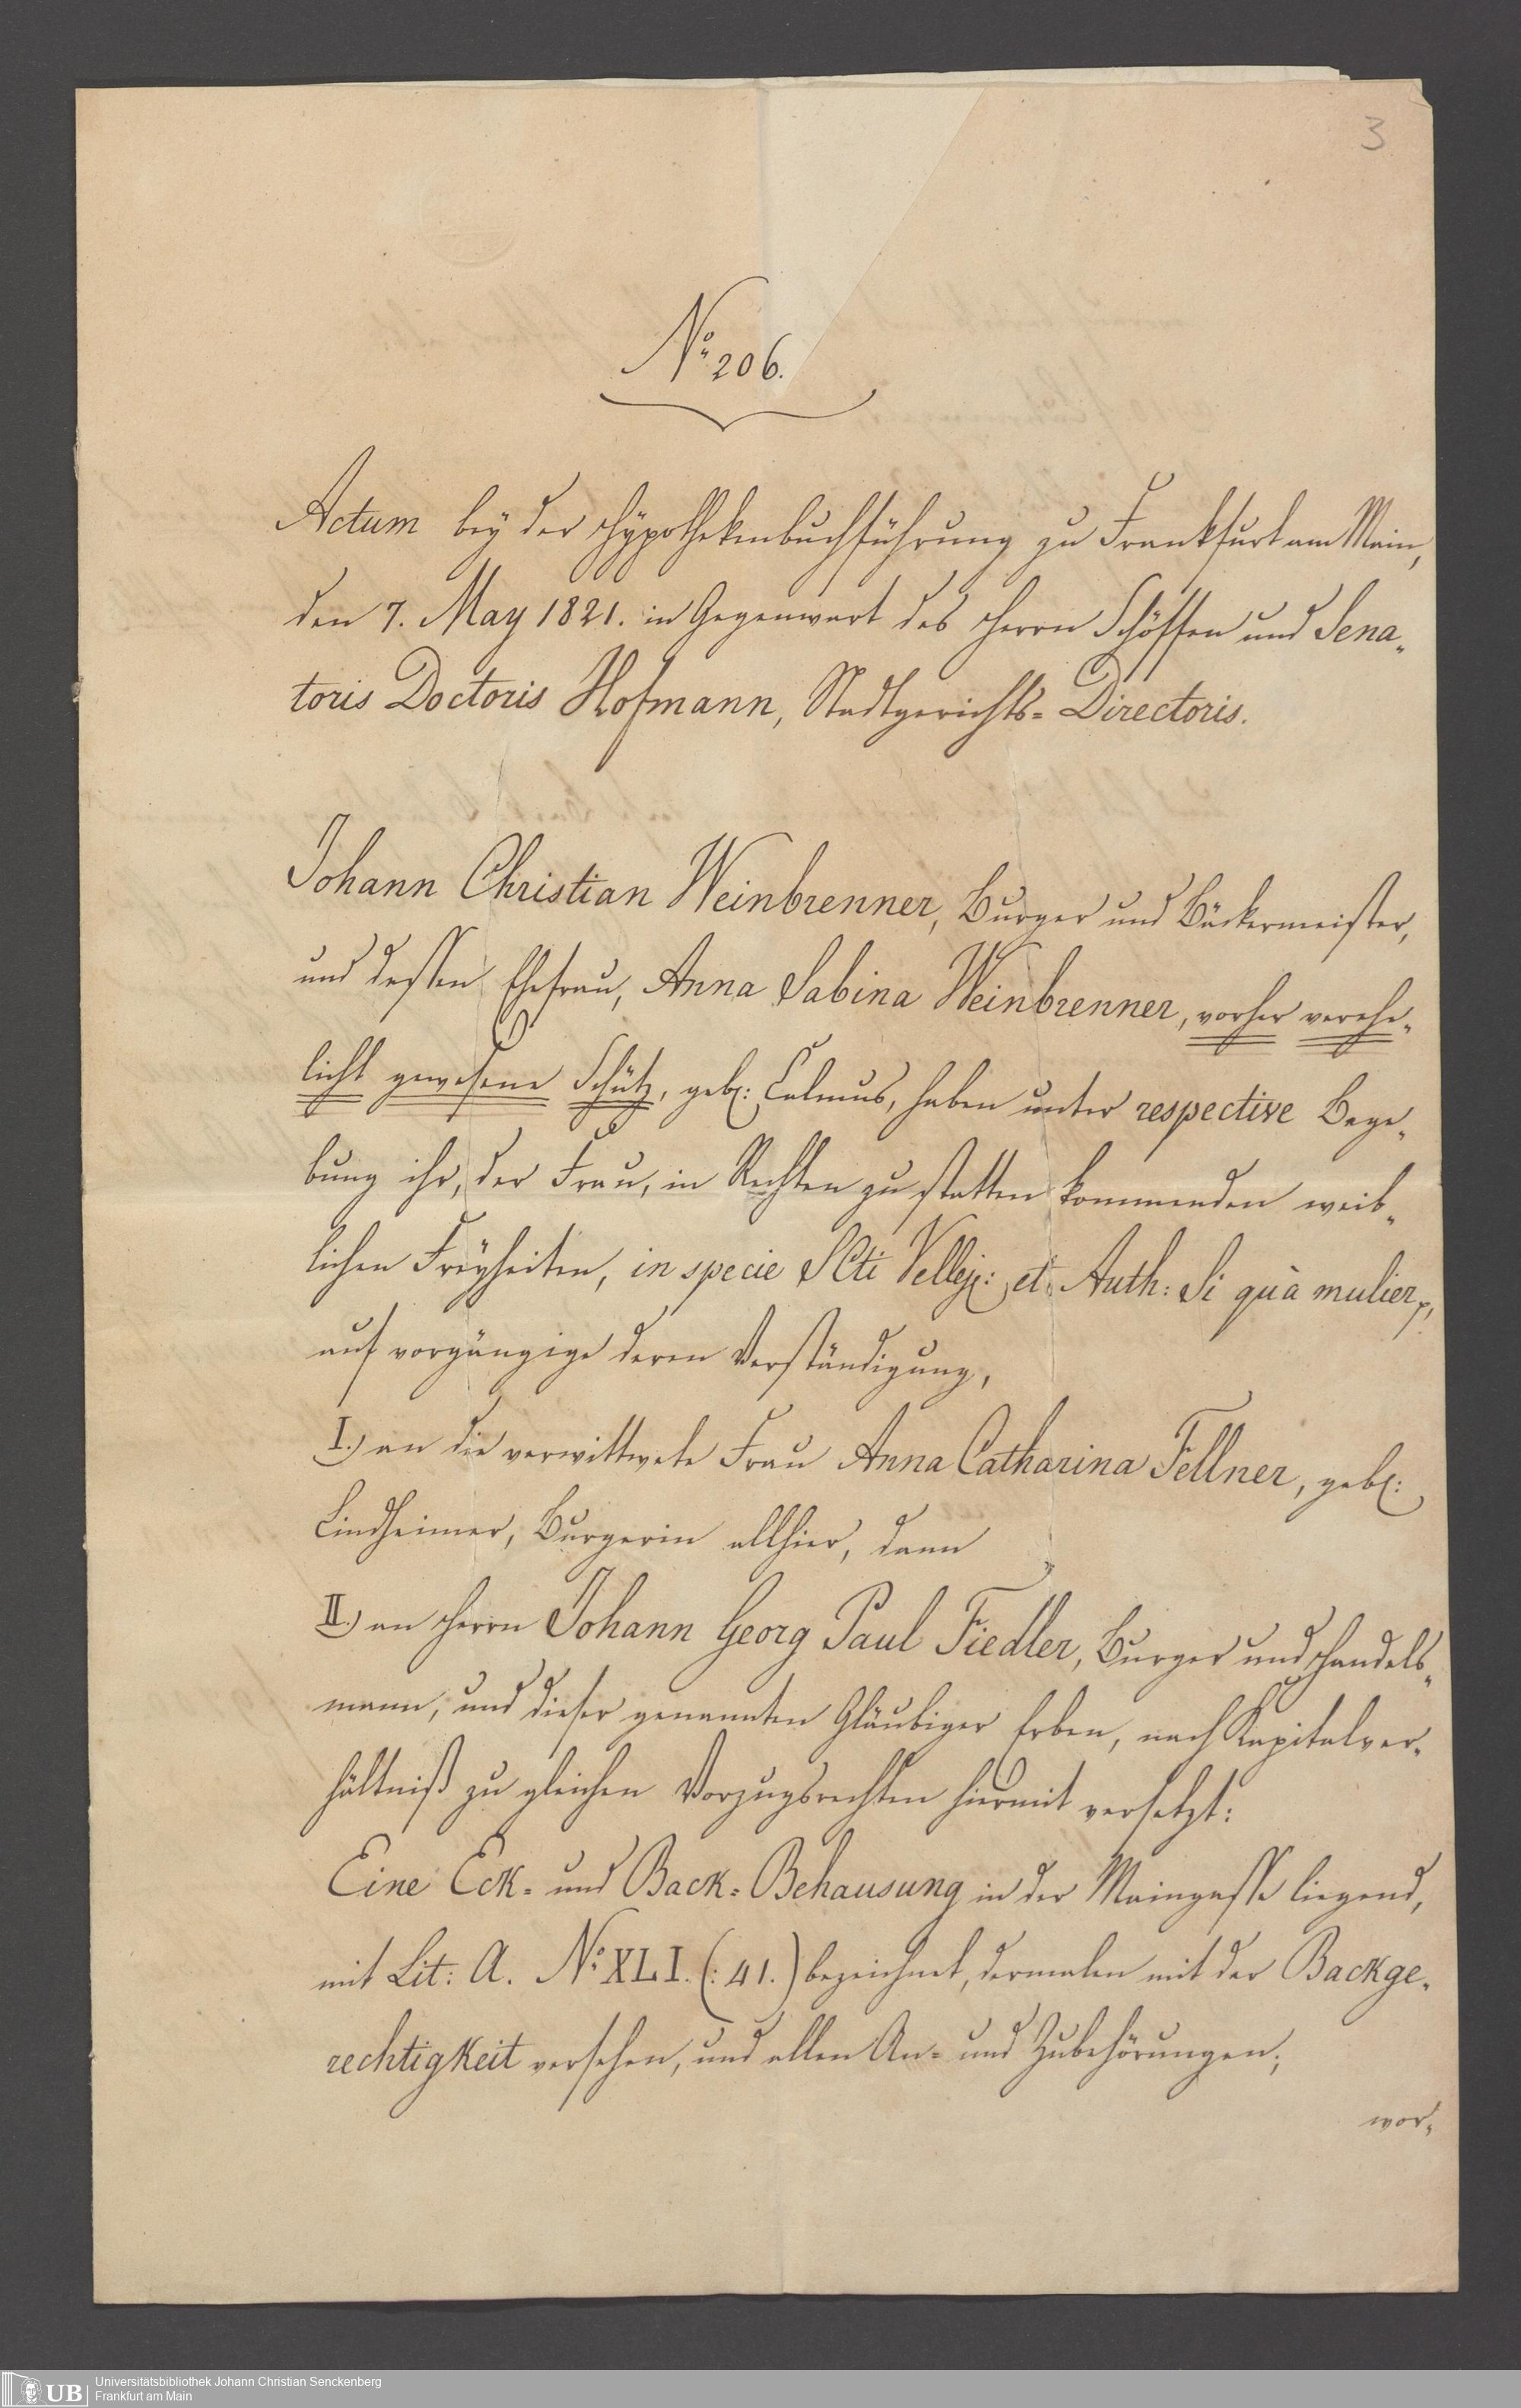 3
No. 206.
Actum bey der Hypothekenbuchführung zu Frankfurt am Main,
den 7. May 1821. in Gegenwart des Herrn Schöffen und Sena-
toris Doctoris Hofmann, Stadtgerichts- Directoris.
Johann Christian Weinbrenner, Burger und Bäckermeister,
und dessen Ehefrau, Anna Sabina Weinbrenner, vorher verehe-
licht gewesene Schütz, geb: Calmus, haben unter respective Bege-
bung ihr, der Frau, in Rechten zu statten kommenden weib-
lichen Freyheiten, in specie SCti Vellej: et Auth: Si quà mulier,
auf vorgängige deren Verständigung,
I.) an die verwittwete Frau Anna Catharina Fellner, geb:
Lindheimer, Burgerin allhier, dann
II.) an Herrn Johann Georg Paul Fiedler, Burger und Handels-
mann, und dieser genannten Gläubiger Erben, nach Kapitalver-
hältniß zu gleichen Vorzugsrechten hiermit versetzt:
Eine Eck- und Back-Behausung in der Maingasse liegend,
mit Lit: A. No. XLI. (: 41.) bezeichnet, dermalen mit der Backge-
rechtigkeit versehen, und allen An- und Zubehörungen;
wor-
UB
Universitätsbibliothek Johann Christian Senckenberg
Frankfurt am Main